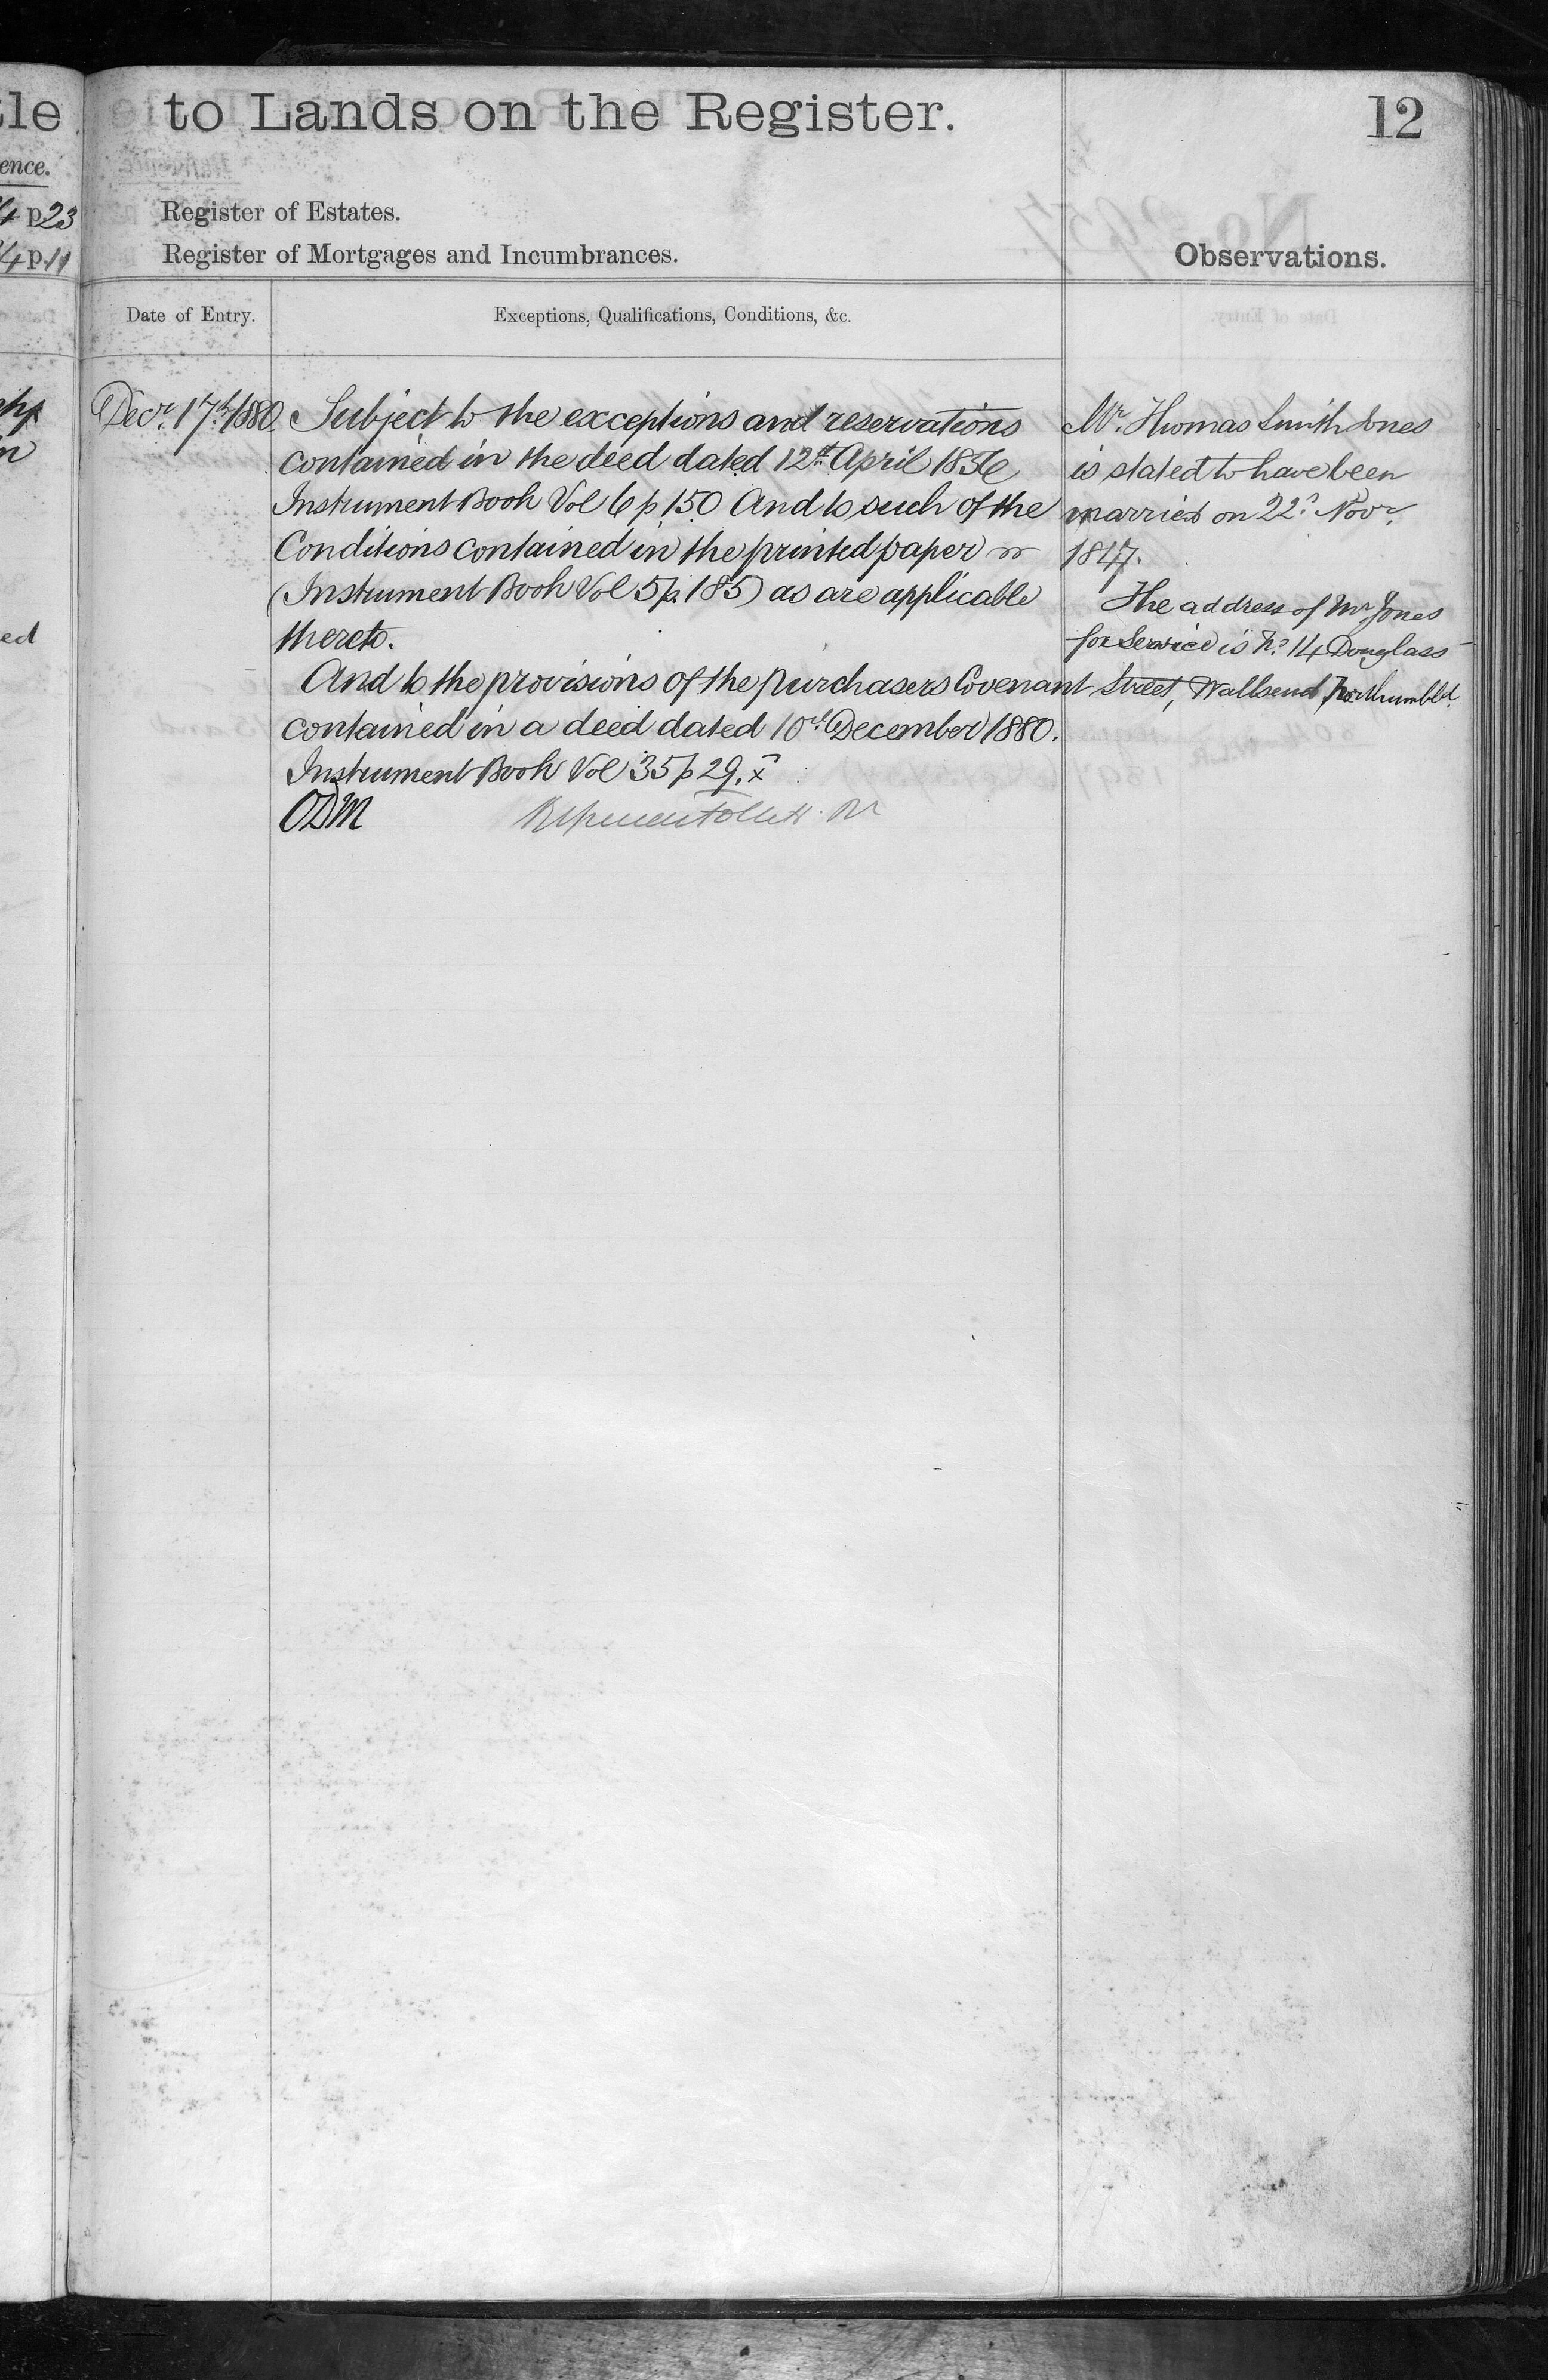 tle to Lands on the Register. 12
ence.
4 p. 23 Register of Estates.
4 p. 11 Register of Mortgages and Incumbrances. Observations.
Date of Entry. Exceptions, Qualifications, Conditions, &c.
Decr. 17th 1880. Subject to the exceptions and reservations
contained in the deed dated 12th April
Instrument Book Vol 6 p 150 And to such of the
Conditions contained in the printed paper
(Instrument Book Vol 5 p. 185) as are applicable
thereto.
And to the provisions of the purchasers Covenant
contained in a deed dated 10th December 1880.
Instrument Book Vol 35 p 29. x
ODM
Mr. Thomas Smith Jones
is stated to have been
married on 22d Novr.
1847.
The address of Mr Jones
for Service is No. 14 Douglass
Street, Wallsend Northumbld.
ed